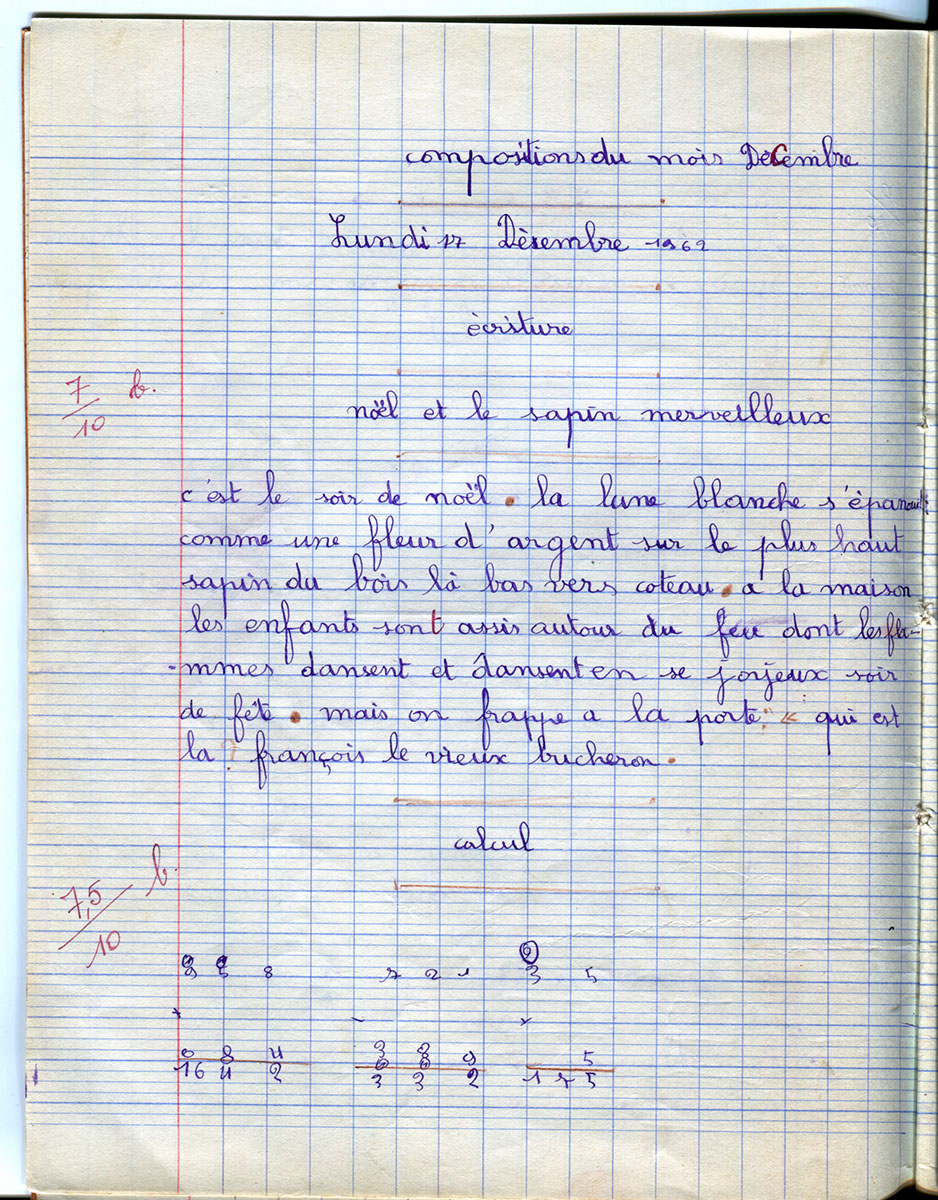 compositions du mois Décembre
Lundi 17 Dèsembre 1962
ècriture
7/10 b.
noël et le sapin merveilleux
c'est le soir de noël. la lune blanche s'épanouit
comme une fleur d'argent sur le plus haut
sapin du bois là bas vers coteau. a la maison
les enfants sont assis autour du feu dont les fla-
-mmes dansent et dansent en se jorjeux soir
de fête. mais on frappe a la porte: « qui est
la? françois le vieux bucheron.
calcul
7,5/10 b.
8 8 7 2 1 3 5
+ - x
8 4 3 8 9 5
16 4 2 3 3 2 1 7 5